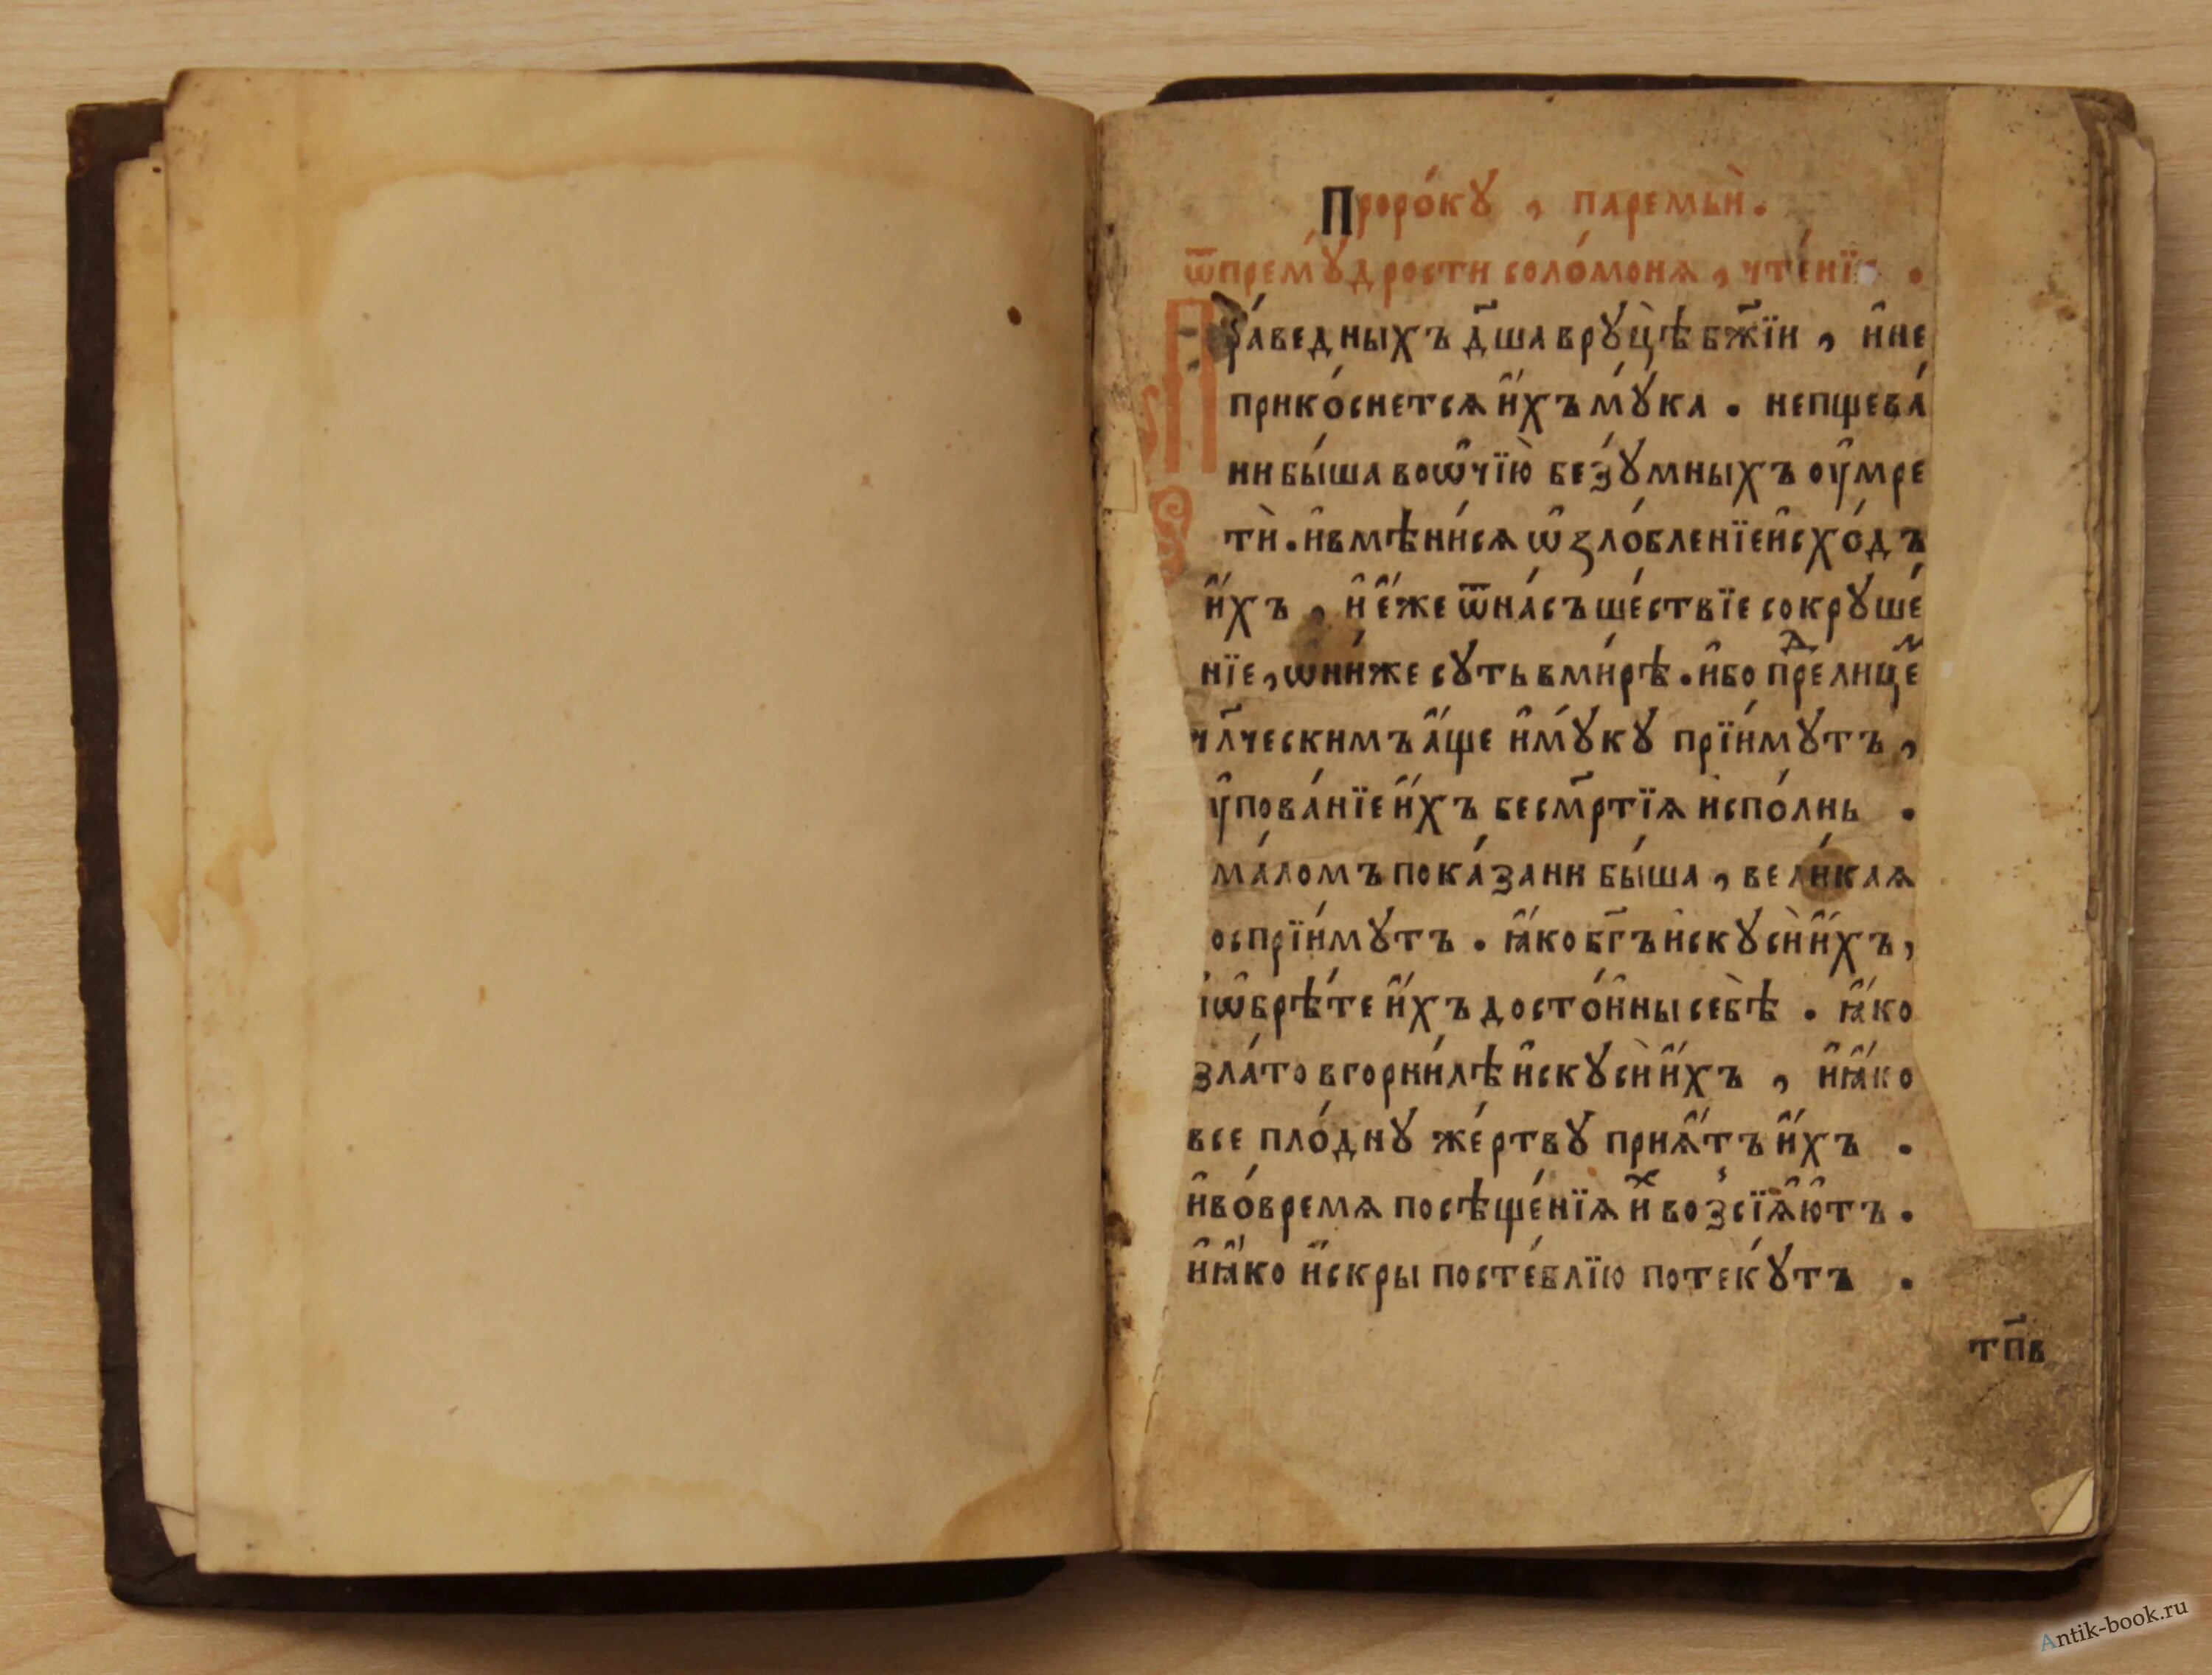 Проро́кꙋ , паремьѝ.
ѿпремꙋ́дрости соло́монѧ , чте́нїе .
Пра́ведныхъ дш҃а врꙋцѣ̀ бж҃їи , и҆не
прико́снетсѧ и҆́хъ мꙋ́ка . непщева́
ни бы́ша воѡ҆чїю̀ безꙋ́мныхъ оу҆мре
тѝ . и҆вмѣни́сѧ ѡ҆ѕло́бленїе и҆схо́дъ
и҆́хъ , и҆ е҆́же ѿна́съ ше́ствїе сокрꙋше́
нїе , ѡ҆ни́же сꙋть вми́рѣ . и҆́бо пре̾ⷣлице́ⷨ
чл҃ческимъ а҆́ще и҆мꙋ́кꙋ прїи́мꙋтъ ,
у҆пова́нїе и҆́хъ бесм҃ртїѧ и҆спо́лнь .
ма́ломъ пока́зани бы́ша , вели́каѧ
оспрїи́мꙋтъ . ꙗ҆́ко бг҃ъ и҆скꙋсѝ и҆́хъ ,
ѡ҆брѣ́те и҆́хъ досто́йны себѣ̀ . ꙗ҆́ко
зла́то вгорни́лѣ и҆скꙋсѝ и҆́хъ , и҆ꙗ҆́ко
все пло́днꙋ же́ртвꙋ приѧ҆́тъ и҆́хъ .
и҆во́времѧ посѣще́нїѧ и҆́ⷯ возсїѧ҆́ю҆тъ .
и҆ꙗ҆́ко и҆́скры посте́блїю потекꙋ́тъ .
тп҃в
Antik-book.ru